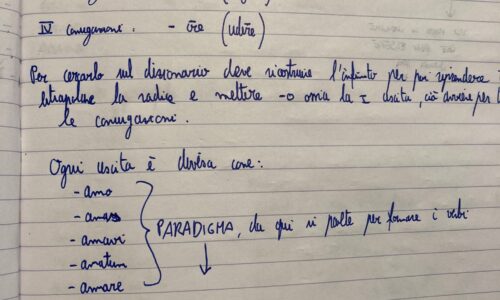 IV coniugazioni: - īre (udīre)
Per cercarlo sul dizionario deve ricostruire l'infinito per poi riprendere
la radice e mettere -o ossia la I uscita, ciò avviene per
le coniugazioni.
Ogni uscita è divisa come:
- amo
- amas
- amavi
- amatum
- amare
PARADIGMA, da qui si parte per formare i verbi